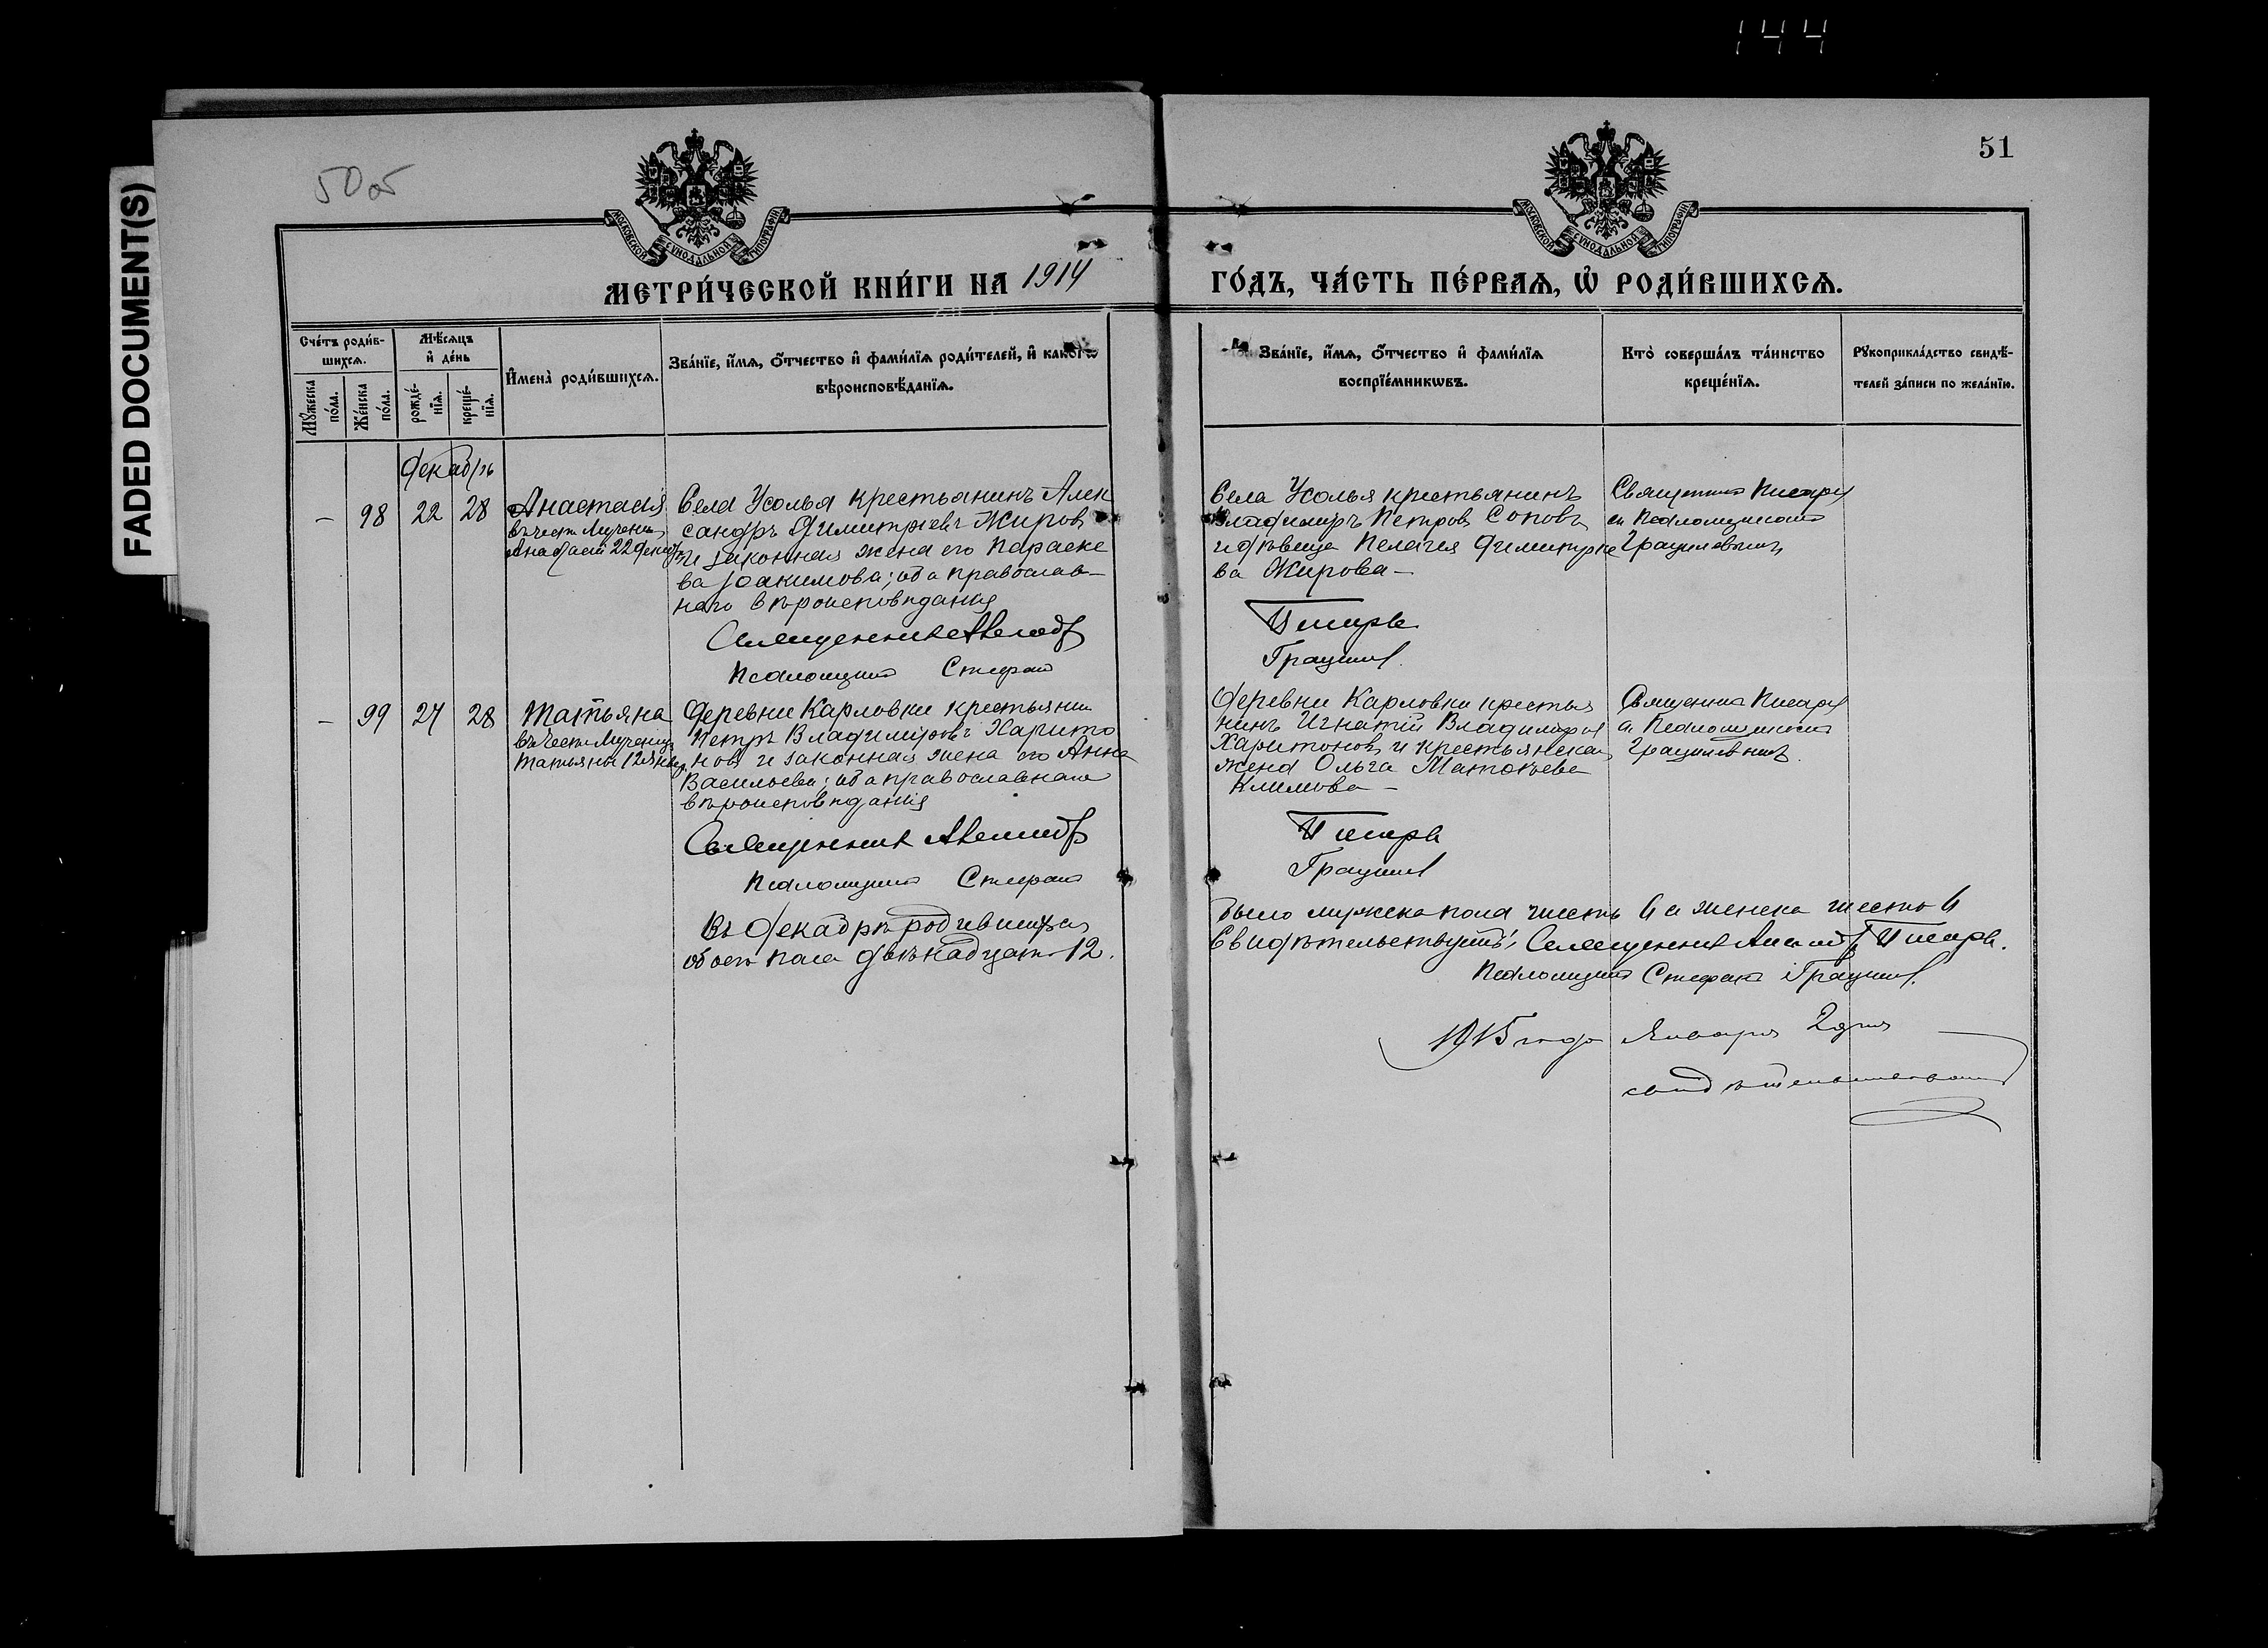 144
FADED DOCUMENT(S)
50об
51
МОСКОВСКОЙ СУНОДАЛЬНОЙ ТИПОГРАФІИ
МОСКОВСКОЙ СУНОДАЛЬНОЙ ТИПОГРАФІИ
МЕТРИ́ЧЕСКОЙ КНИ́ГИ НА 1914
ГО́ДЪ, ЧА́СТЬ ПЕ́РВАѦ, Ѡ҆ РОДИ́ВШИХСѦ.
Сче́тъ роди́в-
шихсѧ.
Мꙋ́жеска по́ла.
Же́нска по́ла.
Мѣ́сѧцъ
и҆ де́нь
рожде́-
нїѧ.
креще́-
нїѧ.
И҆мена̀ роди́вшихсѧ.
Зва́нїе, и҆́мѧ, ѻ҆́тчество и҆ фами́лїѧ роди́телей, и҆ како́гѡ
вѣроисповѣ́данїѧ.
Зва́нїе, и҆́мѧ, ѻ҆́тчество и҆ фами́лїѧ
воспрїе́мникѡвъ.
Кто̀ соверша́лъ та́инство
креще́нїѧ.
Рꙋкоприкла́дство свидѣ́-
телей за́писи по жела́нїю.
Декабрь
– 98 22 28
Анастасія
въ честь Мучениц
Анастасіи 22 Декаб
Села Усолья крестьянинъ Алек
сандръ Димитріевъ Жировъ
и законная жена его Параске
ва Іоакимова; оба православ-
наго вѣроисповѣданія
Священникъ
Псаломщикъ Стефанъ
Села Усолья крестьянинъ
Владиміръ Петровъ Соповъ
и дѣвица Пелагія Димитріе
ва Жирова –
Писаре
Грацил
Священникъ Писаре
съ Псаломщикомъ
Грациловымъ
– 99 27 28
Татьяна
въ честь Мученицы
Татьяны 12 Янв
Деревни Карловки крестьянин
Петръ Владиміровъ Харито
новъ и законная жена его Анна
Васильева; оба православнаго
вѣроисповѣданія
Священникъ
Псаломщикъ Стефанъ
Деревни Карловки крестья
нинъ Игнатій Владиміров
Харитоновъ и крестьянская
жена Ольга Матвѣева
Климова –
Писаре
Грацил
Священникъ Писаре
съ Псаломщикомъ
Въ Декабрѣ родившихся
обоего пола двѣнадцать 12.
Было мужска пола шесть 6 а женска шесть 6
Свидѣтельствуютъ: Священникъ Писаре.
Псаломщикъ Стефанъ Грацил.
1915 года Января 2 дня
свидѣтельствовалъ